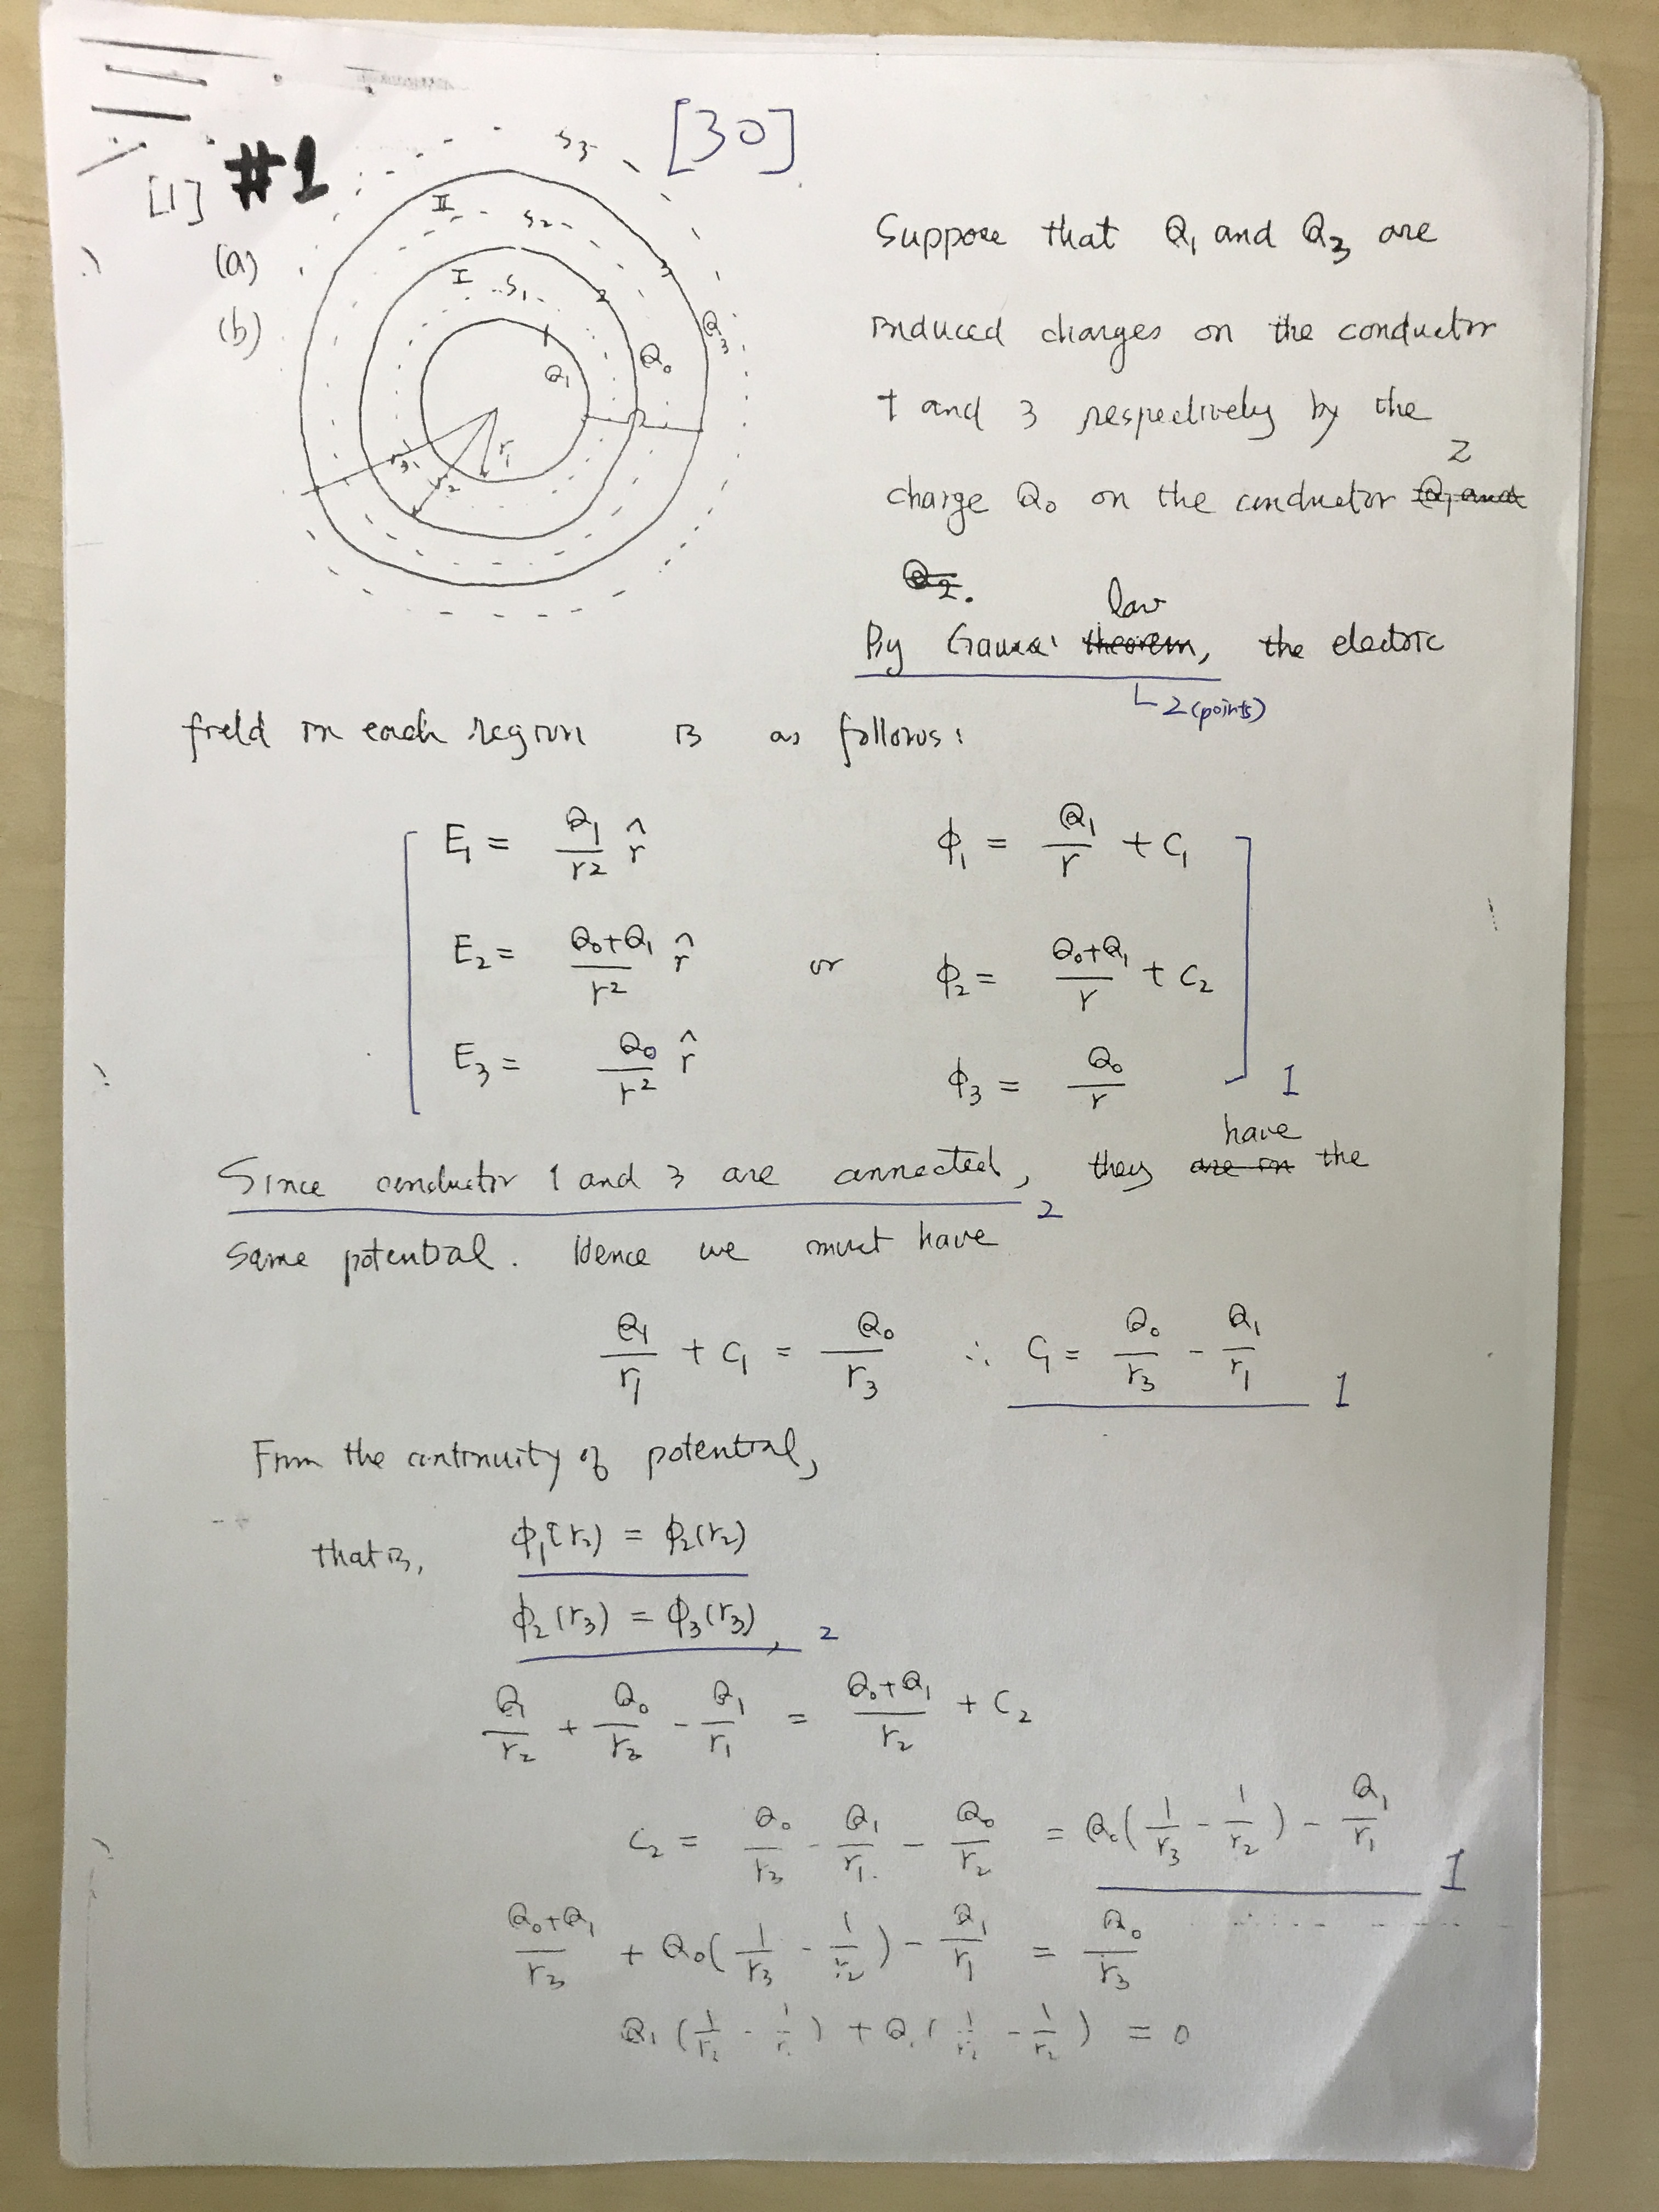 [30]
[1] #1
(a)
(b)
S3
II
S2
I
S1
3
2
1
Q1
Q0
Q3
r3
r2
r1
Suppose that Q1 and Q3 are
induced charges on the conductor
1 and 3 respectively by the
2
charge Q0 on the conductor Q1 and
Q2.
law
By Gauss' theorem, the electric
2 (points)
field in each region is as follows:
E1 = Q1/r² r̂    φ1 = Q1/r + C1
E2 = (Q0+Q1)/r² r̂  or  φ2 = (Q0+Q1)/r + C2
E3 = Q0/r² r̂    φ3 = Q0/r    1
have
Since conductor 1 and 3 are connected, they are in the
2
same potential. Hence we must have
Q1/r1 + C1 = Q0/r3  ∴ C1 = Q0/r3 - Q1/r1  1
From the continuity of potential,
that is, φ1(r2) = φ2(r2)
φ2(r3) = φ3(r3), 2
Q1/r2 + Q0/r3 - Q1/r1 = (Q0+Q1)/r2 + C2
C2 = Q0/r3 - Q1/r1 - Q0/r2 = Q0(1/r3 - 1/r2) - Q1/r1  1
(Q0+Q1)/r3 + Q0(1/r3 - 1/r2) - Q1/r1 = Q0/r3
= 0